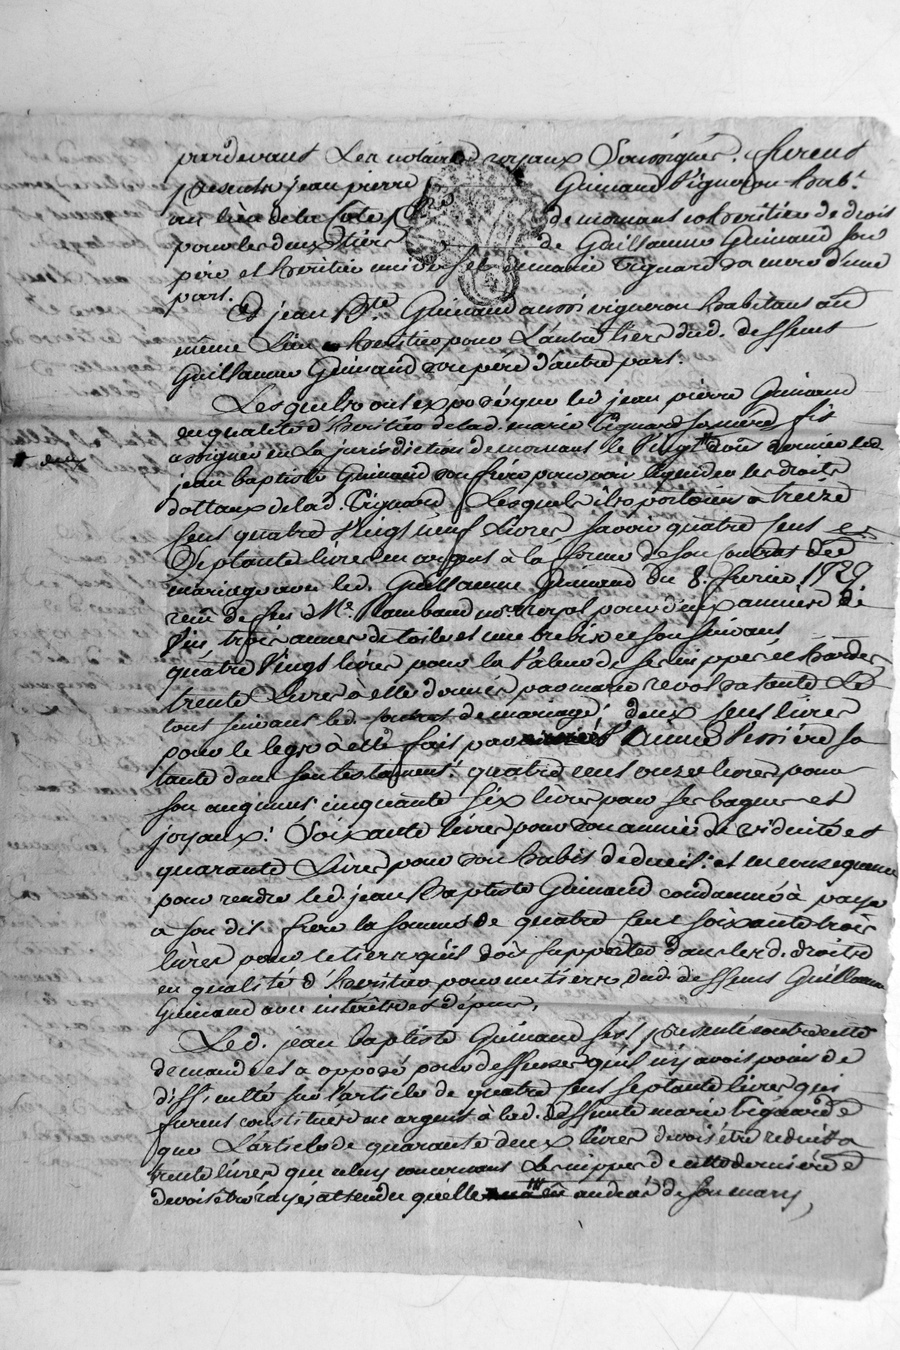 pardevant Les notaires royaux Soussignés. furent
presents jean pierre Guinand Vigneron hab.t
au lieu de la Cote de mornant coheritier de droit
pour les deux tiers de Guillaume Guinand son
pere et heritier universel de marie Tignard sa mere d'une
part.
Et jean B.te Guinand aussi vigneron habitant au
même Lieu heritier pour L'autre tiers dud. deffunt
Guillaume Guinand son pere d'autre part.
Lesquels ont exposé que led jean pierre Guinand
en qualité d'heritier de lad. marie Tignard sa mere fit
assigner en La jurisdiction de mornant le Vingt aout dernier led.
jean baptiste Guinand son frere pour voir liquider les droits
dottaux de lad. Tignard Lesquels il portoient a treize
sent quatre Vingt neuf Livres savoir quatre sent
septante livres en argent à la forme de son contrat de
mariage avec led. Guillaume Guinand du 8. fevrier 1729
reçu de feu M.e Rambaud no.re royal pour deux années de
vin, trois aunes de toile et une brebix et son suivant
quatre Vingt livres pour la Valeur de ses nippes et hardes
trente Livres à elle donnés par marie revol sa tante Le
tout suivant led. contrat de mariage: deux sent livres
pour le legs à elle fait par Anne Verriere sa
tante dans son testament: quatre cent onze livres pour
son augment: cinquante six livres pour ses bagues et
joyaux: soixante livres pour son année de viduité et
quarante Livres pour son habit de deuil: et en consequance
pour rendre led. jean baptiste Guinand condamné à payer
a son dit frere la somme de quatre sent soixante trois
livres pour le tiers qu'il doit supporter dans lesd. droits
en qualité d'heritier pour un tiers dud. deffunt Guillaume
Guinand avec intérêts et dépens.
Led. jean baptiste Guinand s'est presenté contre cette
demande et a opposé pour deffenses qu'il n'y avoit point de
difficulté sur l'article de quatre sent septante livres qui
furent constitués en argent à lad. deffunte marie Tignard et
que L'article de quarante deux livres devoit être reduit a
trente livres que celuy concernant Les nippes de cette derniere
devoit être rayé, attendu qu'elle au decès de son mary,